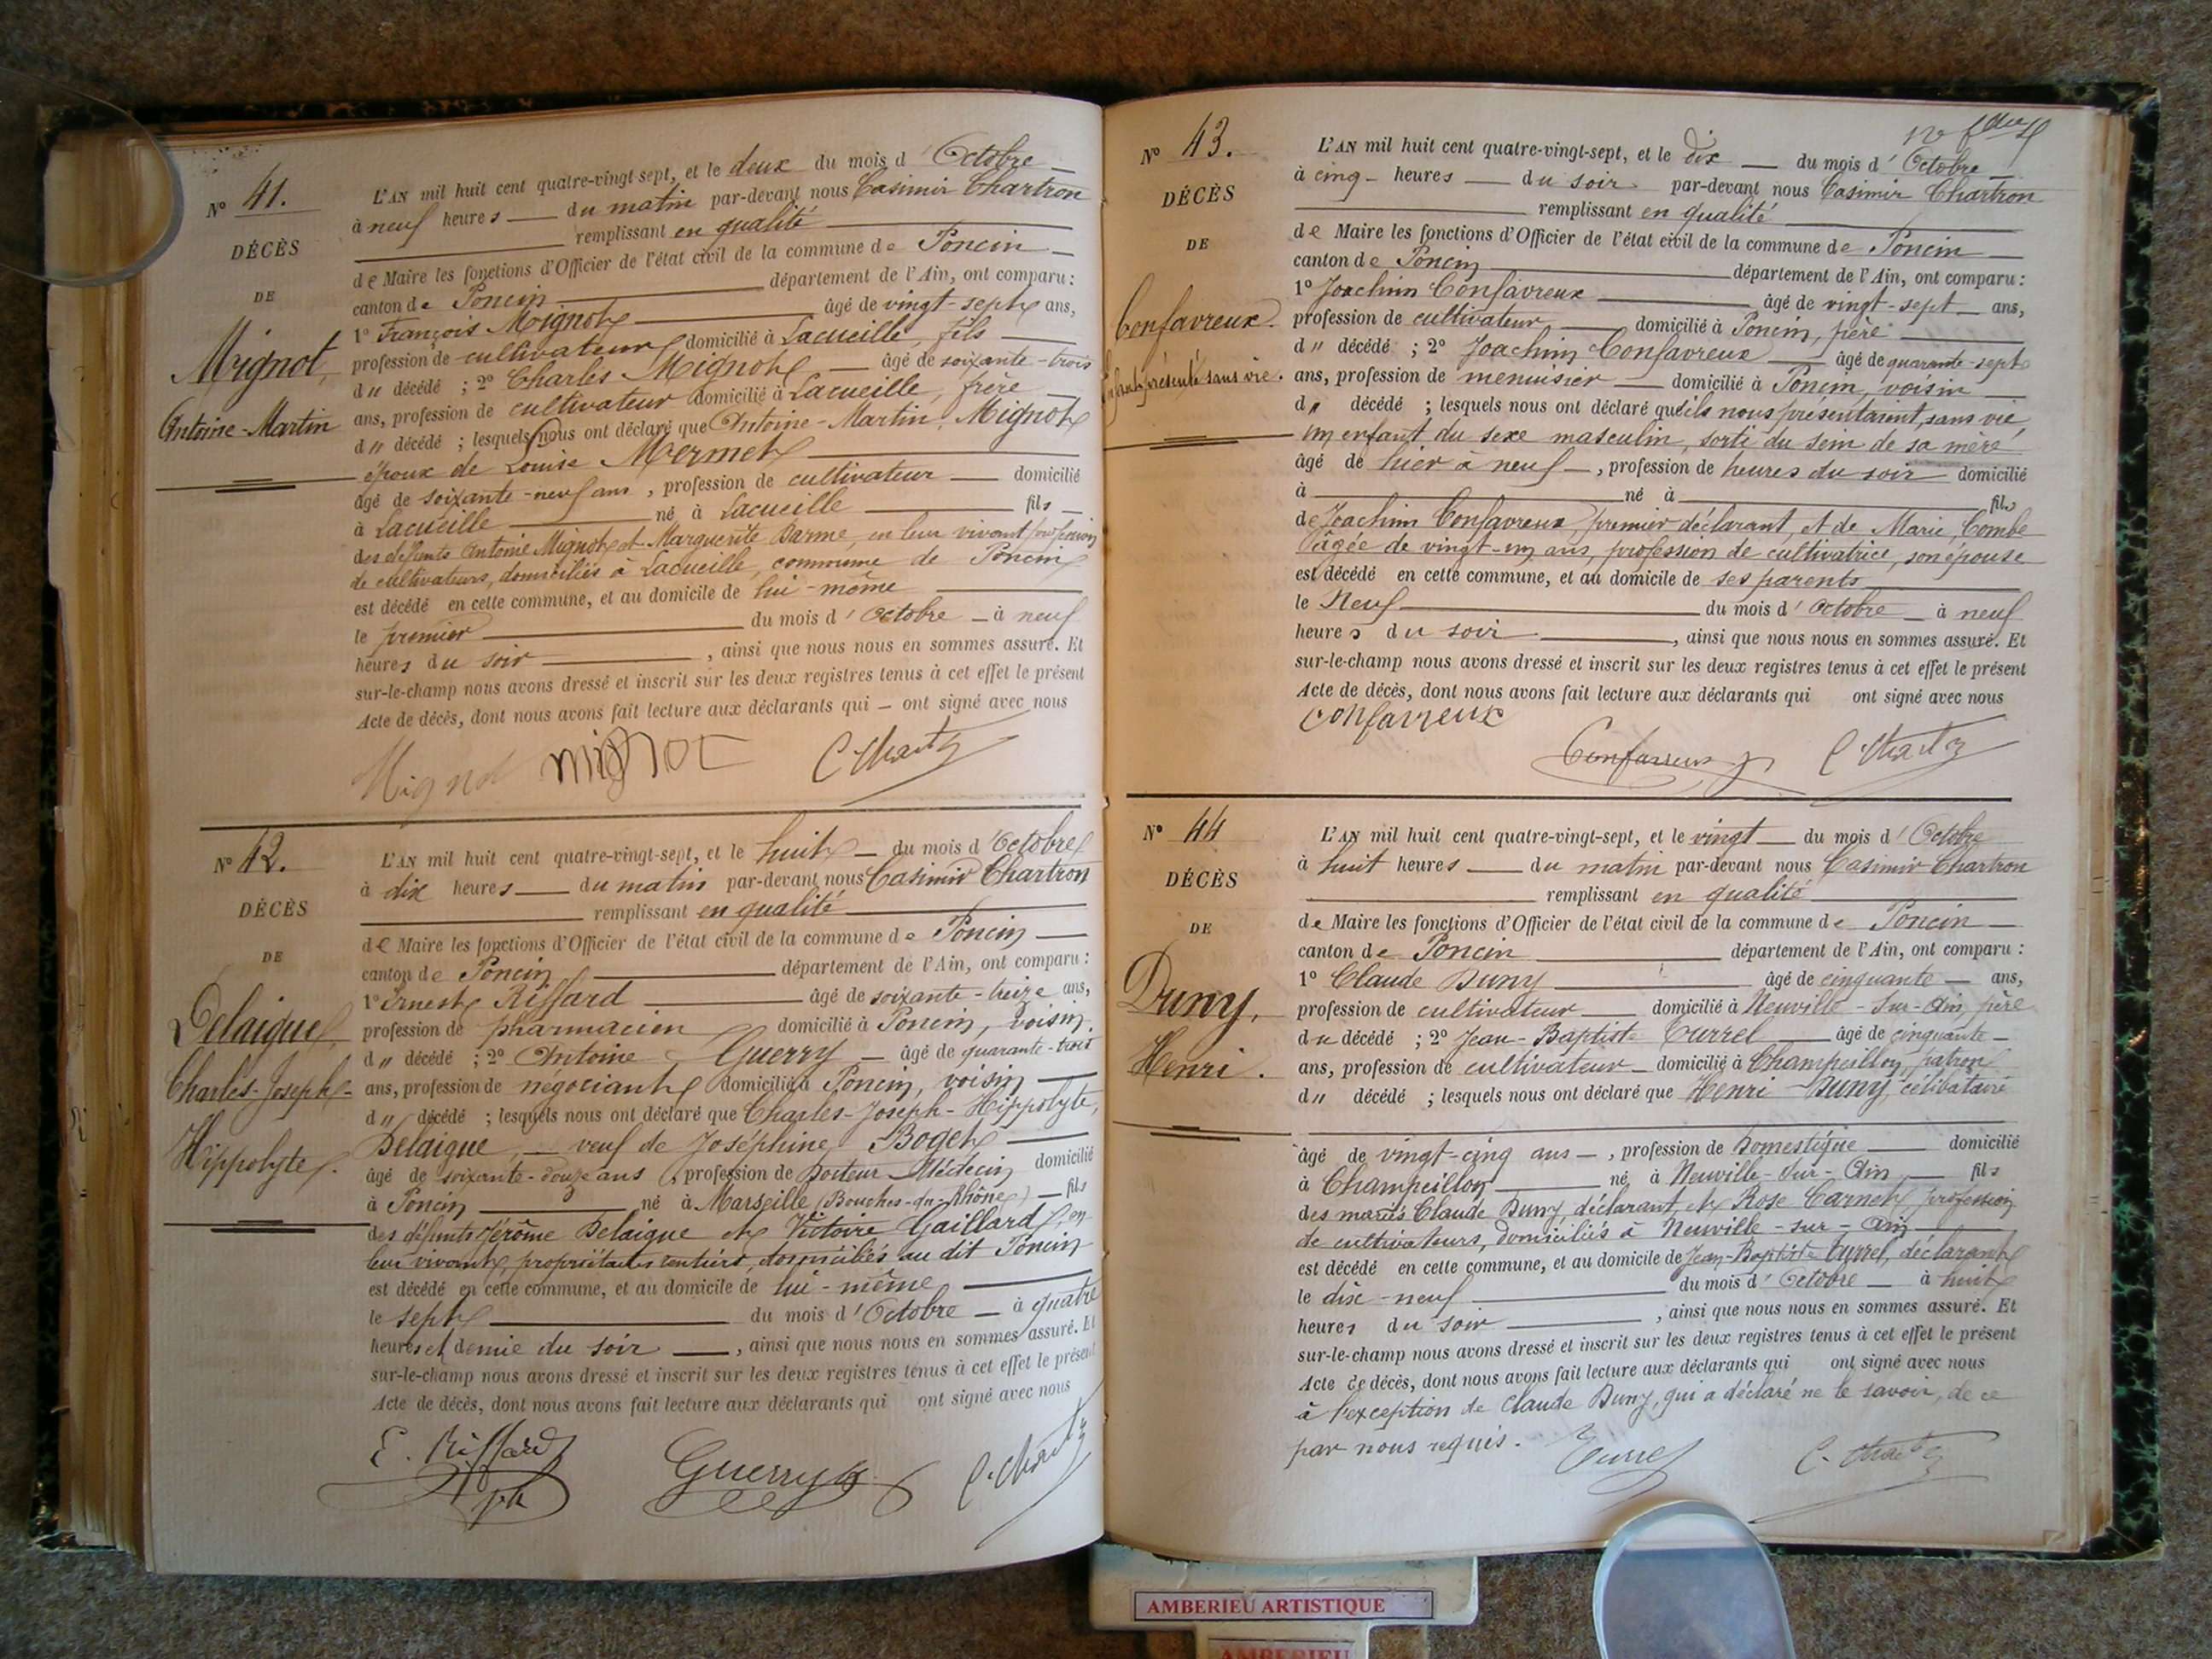 N° 41.
DÉCÈS
DE
Mignot,
Antoine-Martin
L'AN mil huit cent quatre-vingt-sept, et le deux du mois d'Octobre
à neuf heures du matin par-devant nous Casimir Chartron
remplissant en qualité
de Maire les fonctions d'Officier de l'état civil de la commune de Poncin
canton de Poncin département de l'Ain, ont comparu :
1° François Mignot âgé de vingt-sept ans,
profession de cultivateur domicilié à Lacueille, fils
d" décédé ; 2° Charles Mignot âgé de soixante-trois
ans, profession de cultivateur domicilié à Lacueille, frère
d" décédé ; lesquels nous ont déclaré que Antoine-Martin, Mignot
époux de Louise Mermet
âgé de soixante-neuf ans, profession de cultivateur domicilié
à Lacueille né à Lacueille fils
des défunts Antoine Mignot et Marguerite Darme, en leur vivant profession
de cultivateurs, domiciliés à Lacueille, commune de Poncin
est décédé en cette commune, et au domicile de lui-même
le premier du mois d'Octobre à neuf
heures du soir, ainsi que nous nous en sommes assuré. Et
sur-le-champ nous avons dressé et inscrit sur les deux registres tenus à cet effet le présent
Acte de décès, dont nous avons fait lecture aux déclarants qui ont signé avec nous
Mignot mignot
N° 42.
DÉCÈS
DE
Delaigue,
Charles-Joseph-
Hippolyte.
L'AN mil huit cent quatre-vingt-sept, et le huit du mois d'Octobre
à dix heures du matin par-devant nous Casimir Chartron
remplissant en qualité
de Maire les fonctions d'Officier de l'état civil de la commune de Poncin
canton de Poncin département de l'Ain, ont comparu :
1° Ernest Riffard âgé de soixante-treize ans,
profession de pharmacien domicilié à Poncin, voisin,
d" décédé ; 2° Antoine Guerry âgé de quarante-trois
ans, profession de négociant domicilié à Poncin, voisin
d" décédé ; lesquels nous ont déclaré que Charles-Joseph-Hippolyte,
Delaigue, veuf de Joséphine Boget
âgé de soixante-douze ans, profession de Docteur Médecin domicilié
à Poncin né à Marseille (Bouches-du-Rhône) fils
des défunts Jérôme Delaigue et Victoire Gaillard, en
leur vivant, propriétaires rentiers, domiciliés au dit Poncin
est décédé en cette commune, et au domicile de lui-même
le sept du mois d'Octobre à quatre
heures et demie du soir, ainsi que nous nous en sommes assuré. Et
sur-le-champ nous avons dressé et inscrit sur les deux registres tenus à cet effet le présent
Acte de décès, dont nous avons fait lecture aux déclarants qui ont signé avec nous
E. Riffard ph Guerry
N° 43.
DÉCÈS
DE
Confavreux.
Enfant présenté sans vie.
L'AN mil huit cent quatre-vingt-sept, et le dix du mois d'Octobre
à cinq heures du soir par-devant nous Casimir Chartron
remplissant en qualité
de Maire les fonctions d'Officier de l'état civil de la commune de Poncin
canton de Poncin département de l'Ain, ont comparu :
1° Joachim Confavreux âgé de vingt-sept ans,
profession de cultivateur domicilié à Poncin, père
d" décédé ; 2° Joachim Confavreux âgé de quarante-sept
ans, profession de menuisier domicilié à Poncin, voisin
d" décédé ; lesquels nous ont déclaré qu'ils nous présentaient, sans vie
un enfant du sexe masculin, sorti du sein de sa mère
âgé de hier à neuf, profession de heures du soir domicilié
à né à fils
de Joachim Confavreux premier déclarant, et de Marie Combe
âgée de vingt-un ans, profession de cultivatrice, son épouse
est décédé en cette commune, et au domicile de ses parents
le Neuf du mois d'Octobre à neuf
heures du soir, ainsi que nous nous en sommes assuré. Et
sur-le-champ nous avons dressé et inscrit sur les deux registres tenus à cet effet le présent
Acte de décès, dont nous avons fait lecture aux déclarants qui ont signé avec nous
confavreux
N° 44
DÉCÈS
DE
Duny,
Henri.
L'AN mil huit cent quatre-vingt-sept, et le vingt du mois d'Octobre
à huit heures du matin par-devant nous Casimir Chartron
remplissant en qualité
de Maire les fonctions d'Officier de l'état civil de la commune de Poncin
canton de Poncin département de l'Ain, ont comparu :
1° Claude Duny âgé de cinquante ans,
profession de cultivateur domicilié à Neuville-sur-Ain, père
du décédé ; 2° Jean-Baptiste Turrel âgé de cinquante
ans, profession de cultivateur domicilié à Champeillon, patron
d" décédé ; lesquels nous ont déclaré que Henri Duny, célibataire
âgé de vingt-cinq ans, profession de Domestique domicilié
à Champeillon né à Neuville-sur-Ain fils
des mariés Claude Duny déclarant, et Rose Carnet, profession
de cultivateurs, domiciliés à Neuville-sur-Ain
est décédé en cette commune, et au domicile de Jean-Baptiste Turrel, déclarant
le dix-neuf du mois d'Octobre à huit
heures du soir, ainsi que nous nous en sommes assuré. Et
sur-le-champ nous avons dressé et inscrit sur les deux registres tenus à cet effet le présent
Acte de décès, dont nous avons fait lecture aux déclarants qui ont signé avec nous
à l'exception de Claude Duny, qui a déclaré ne le savoir, de ce
par nous requis. Turrel
AMBERIEU ARTISTIQUE
AMBERIEU